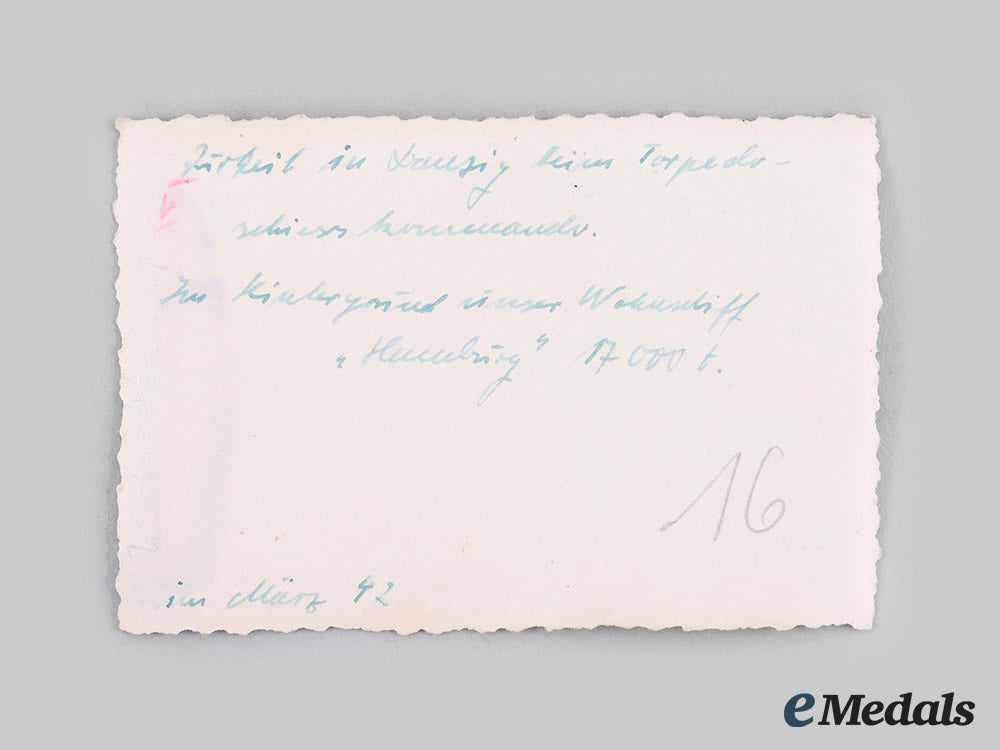 Zurzeit in Danzig beim Torpedo-
schiesskommando.
Im Hintergrund unser Wohnschiff
„Hamburg“ 17000 t.
16
im März 42
eMedals